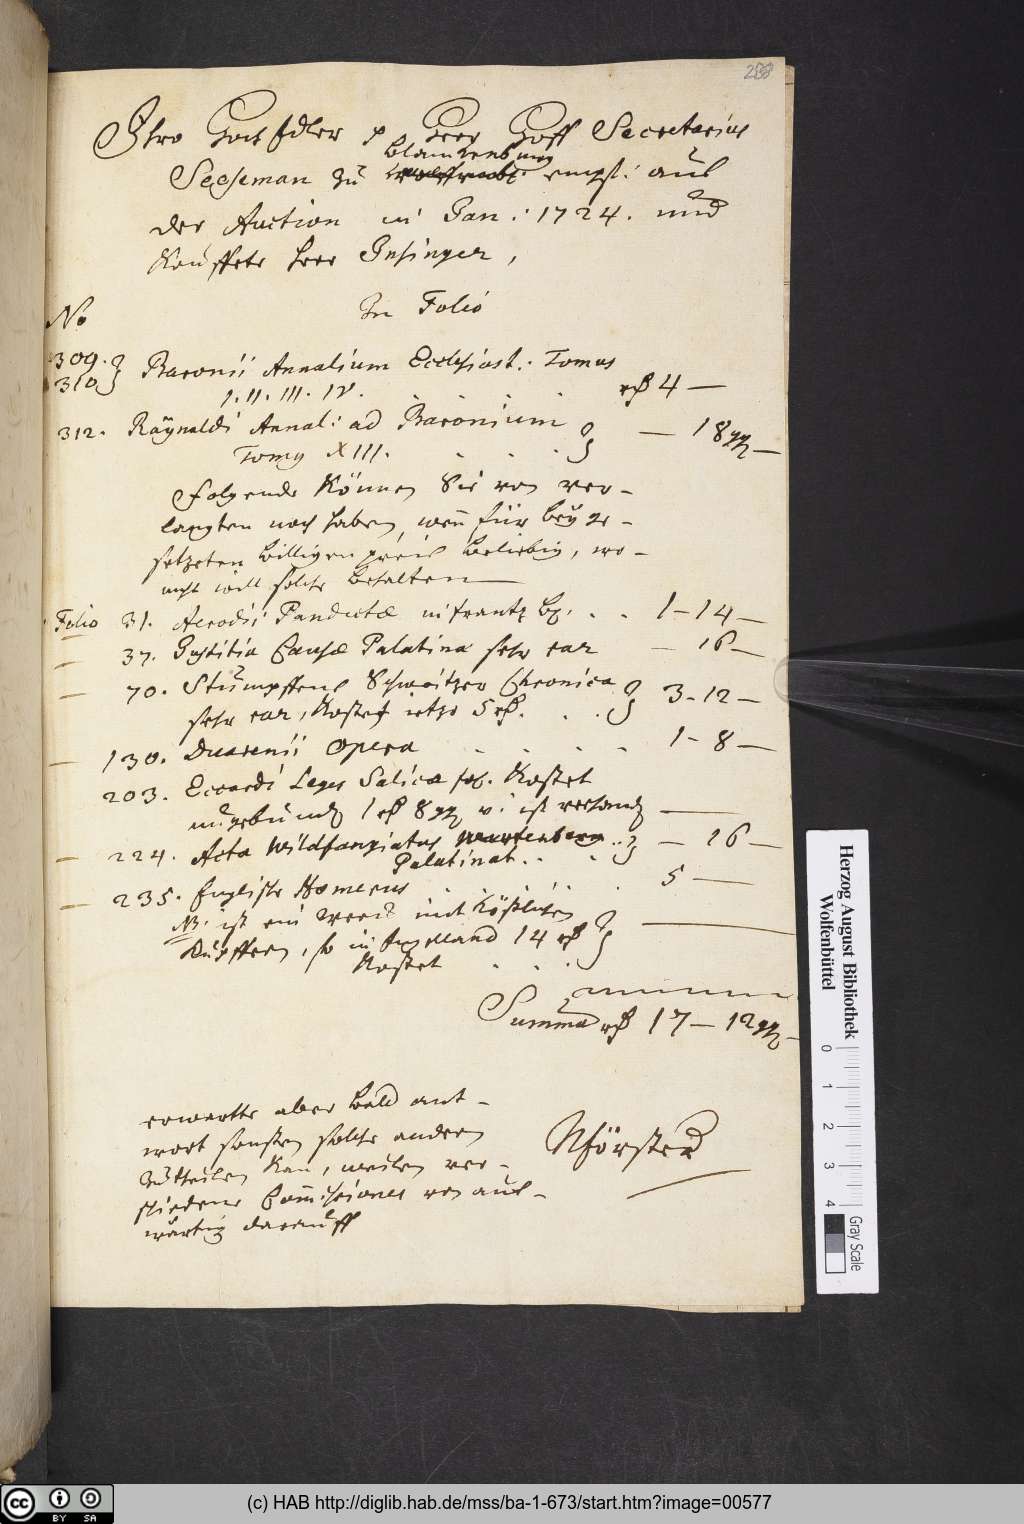 238
Ihro HochEdler p Herr Hoff Secretarius
Blanckenburg
Seeseman zu empf: aus
der Auction in Jan: 1724. und
Kauffete herr Gnsinger,
No In Folio
309. } Baronii Annalium Ecclesiast: Tomus
310 } I. II. III. IV. . . . rth 4 —
312. Räynaldi Annal: ad Baronium } — 18 ggr —
Tomus XIII. . . .
Folgende Können Sie von ver-
langten noch haben, wen für beÿge-
setzeten billigen preis beliebig, wo-
nicht will solche behalten —
Folio 31. Aerodii Pandectæ in frantz b. . . 1 - 14 —
— 37. Justitia Causæ Palatina sehr rar — 16 —
— 70. Stumpffens Schweitzer Chronica } 3 - 12 —
sehr rar, Kostet ietzo 5 rth. . .
— 130. Duarenii Opera . . . . 1 - 8 —
203. Eccardi Leges Salicæ fol. Kostet
ungebunden 1 rth 8 ggr u: ist verhanden —
— 224. Acta Wildfangiatus Wartenberg .. } — 16 —
Palatinat. .
— 235. Englische Homerus . . . . 5 —
NB. ist ein Werck mit Köstlichen
Kupffern, so in Engelland 14 rth }
Kostet . . .
Summa rth 17 — 12 ggr —
erwartte aber bald ant-
wort sonsten solche andern
zutheilen Kan, weilen ver-
schiedene Commissiones von aus-
wärtig darauff
NFörster
Herzog August Bibliothek
Wolfenbüttel
0 1 2 3 4
Gray Scale
cc BY SA
(c) HAB http://diglib.hab.de/mss/ba-1-673/start.htm?image=00577